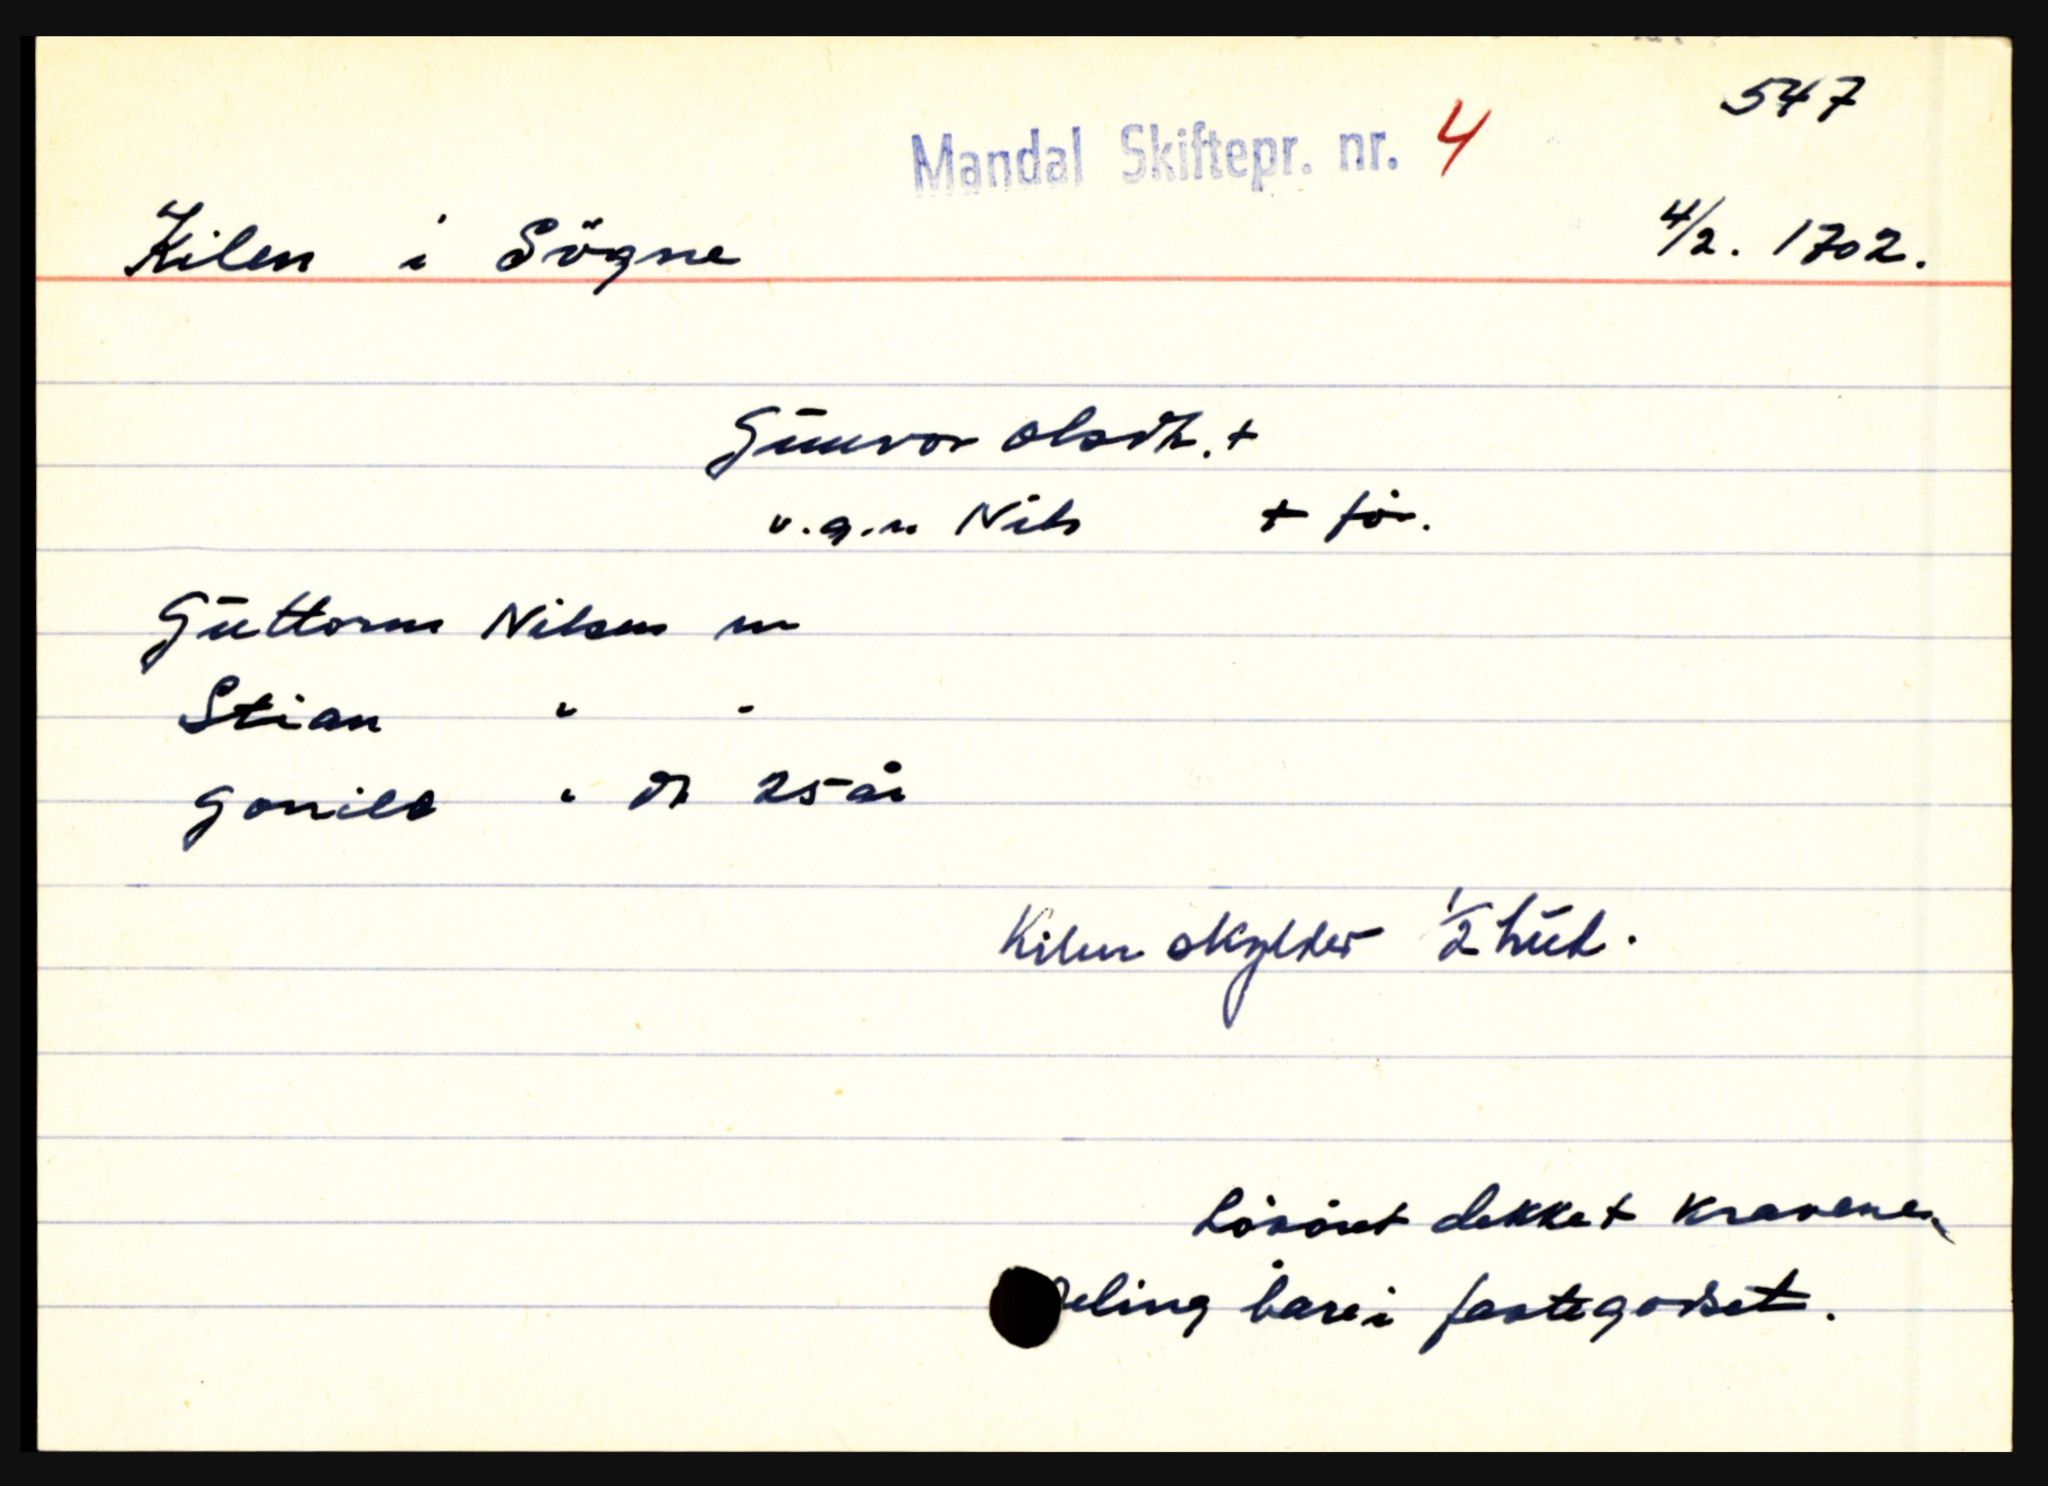 547
Mandal Skiftepr. nr. 4
Kilen i Sögne 4/2. 1702.
Gunvor Olsdtr. +
v.g.m Nils + før.
Guttorm Nilsen m
Stian " "
Gonild " dtr 25 år
Kilen skylder 1/2 hud.
Lösöret dekket kravene.
Deling bare i fastegodset.